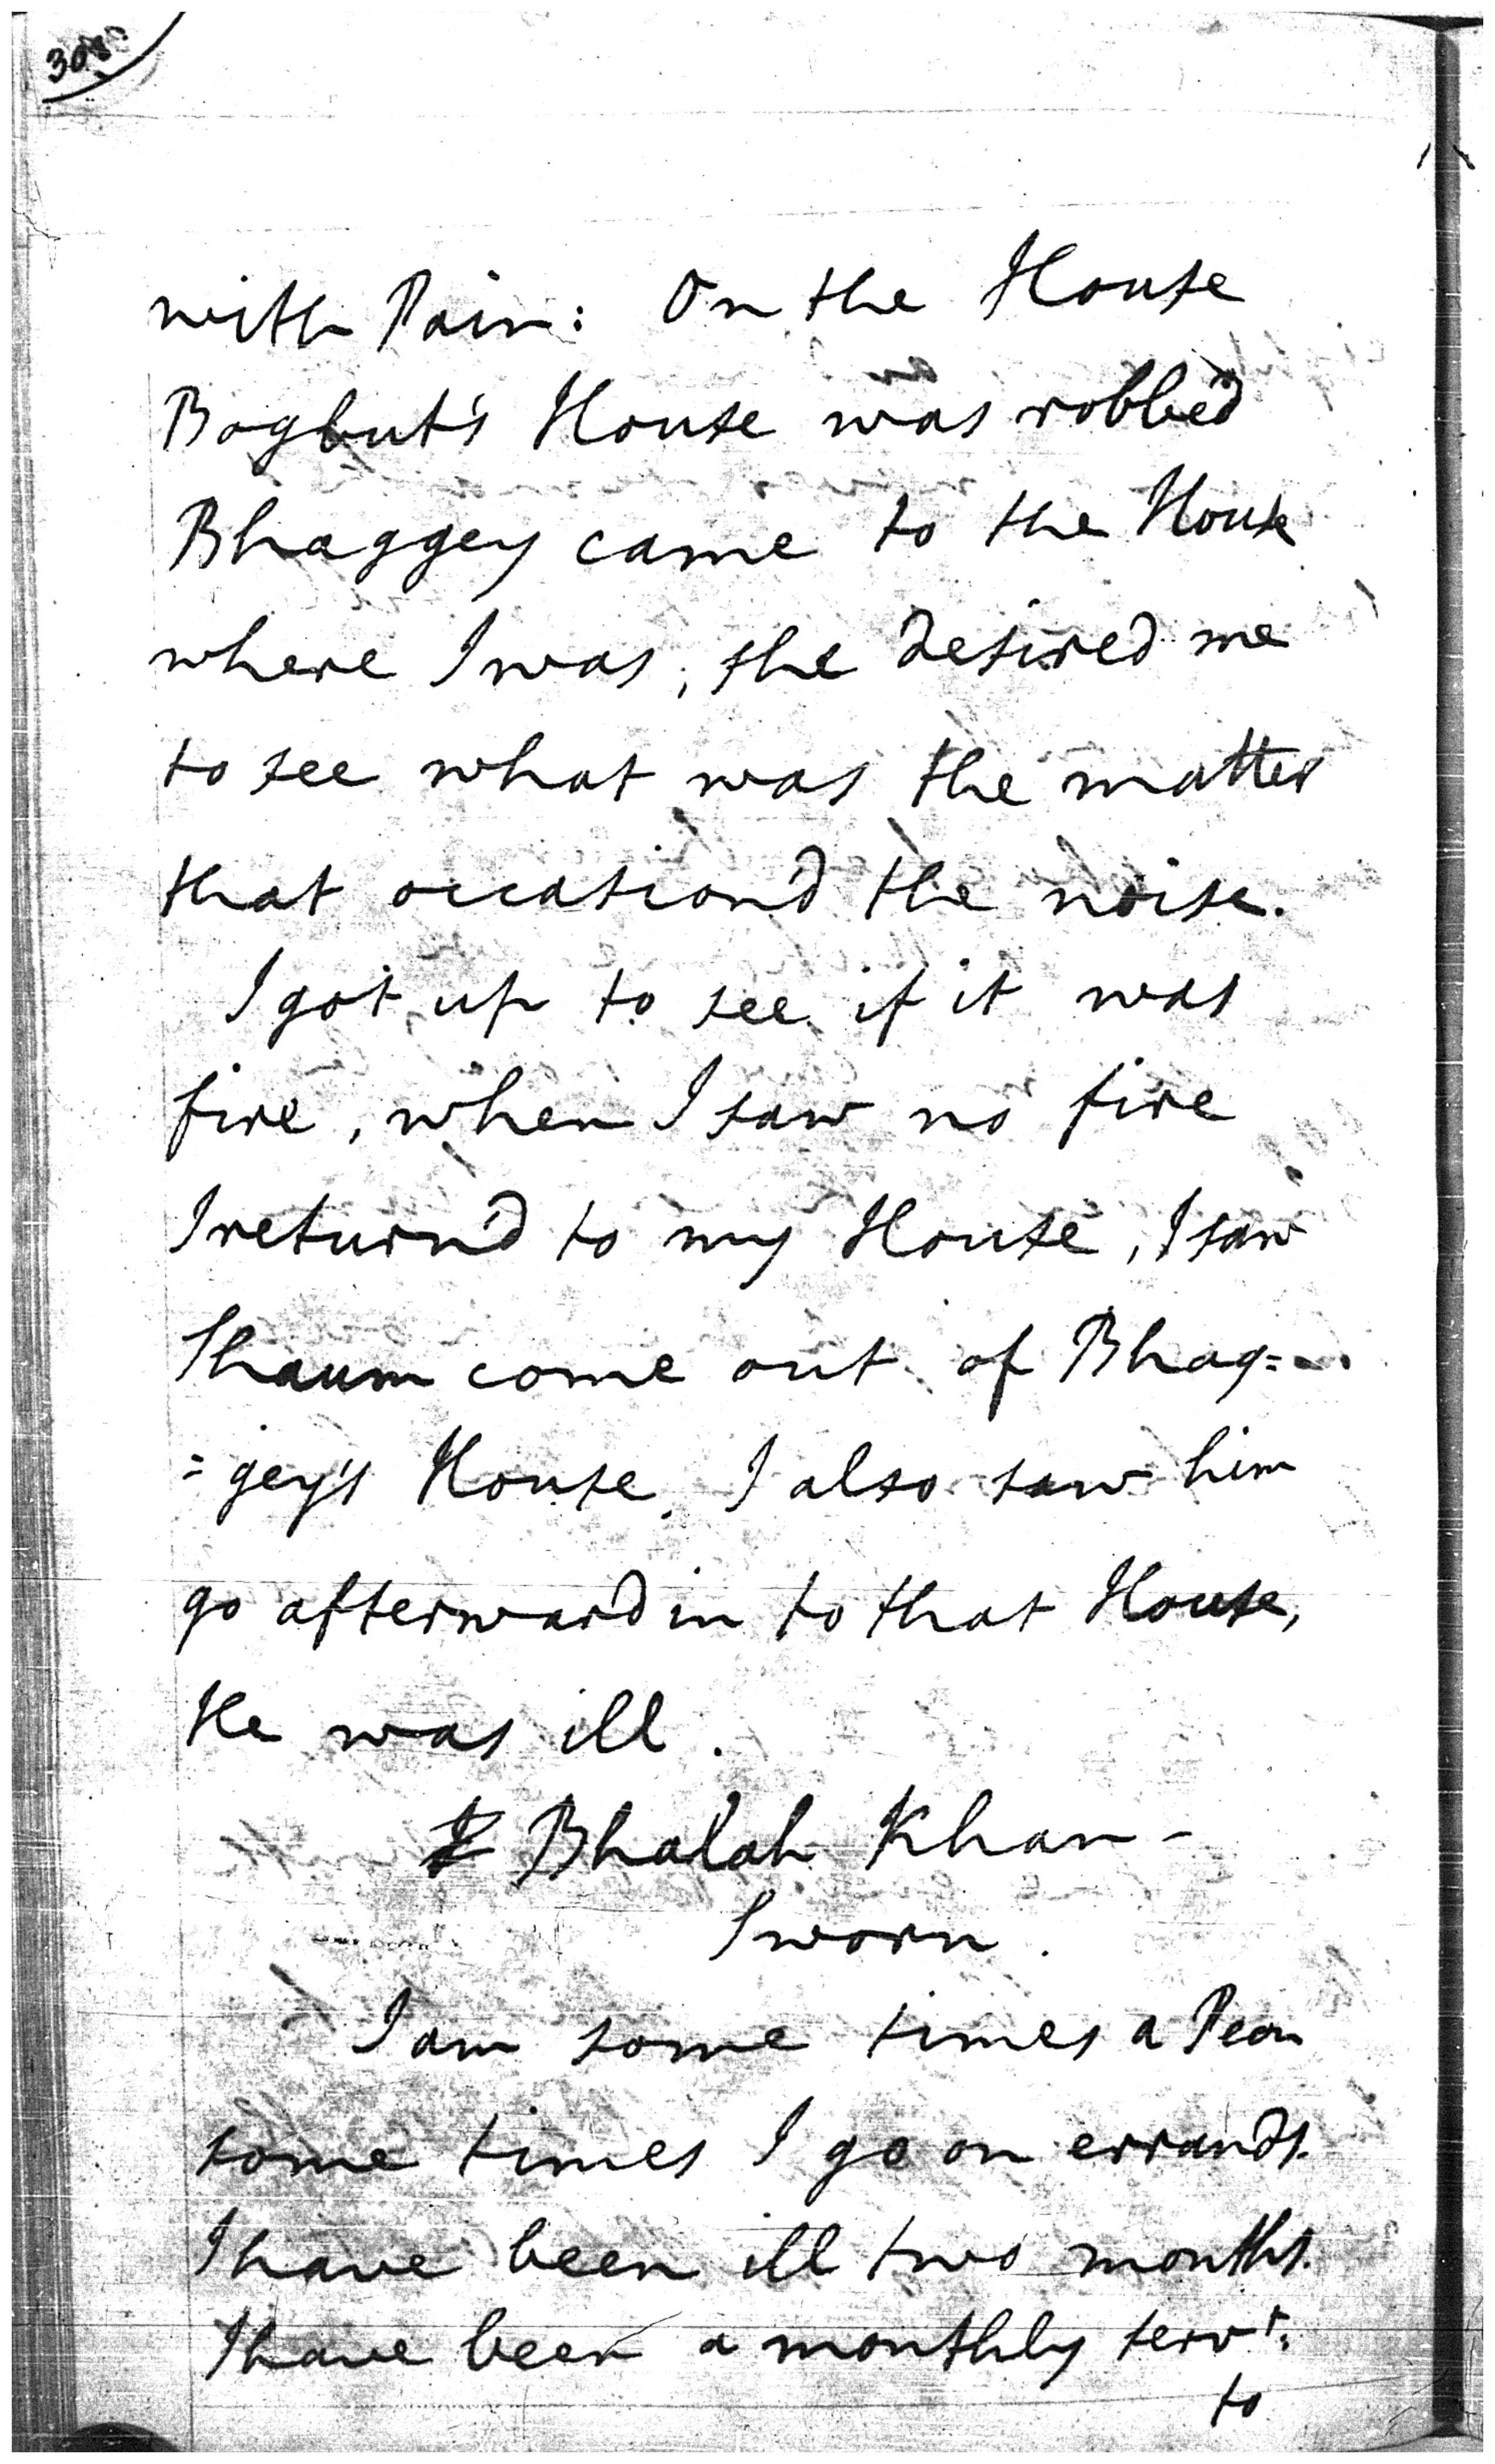 with Pain: On the House
Bogbut's House was robbed
Bhaggey came to the House
where I was, she desired me
to see what was the matter
that occasion'd the noise.
I got up to see if it was
fire, when I saw no fire
I return'd to my House, I saw
Shaum come out of Bhag=
=gey's House, I also saw him
go afterward in to that House,
He was ill.
Bhalah Khan -
Sworn.
I am some times a Peon
some times I go on errands.
I have been ill two months.
I have been a monthly servt:
to